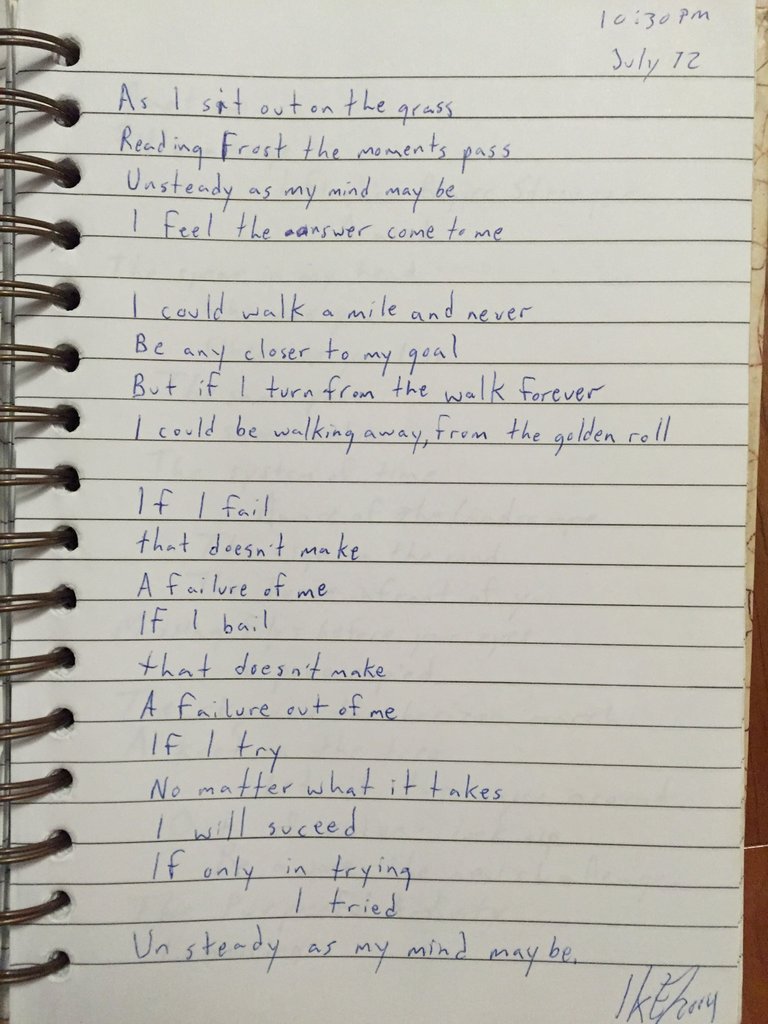 10:30 PM
July 12
As I sit out on the grass
Reading Frost the moments pass
Unsteady as my mind may be
I feel the answer come to me
I could walk a mile and never
Be any closer to my goal
But if I turn from the walk forever
I could be walking away, from the golden roll
If I fail
that doesn't make
A failure of me
If I bail
that doesn't make
A failure out of me
If I try
No matter what it takes
I will suceed
If only in trying
I tried
Unsteady as my mind may be.